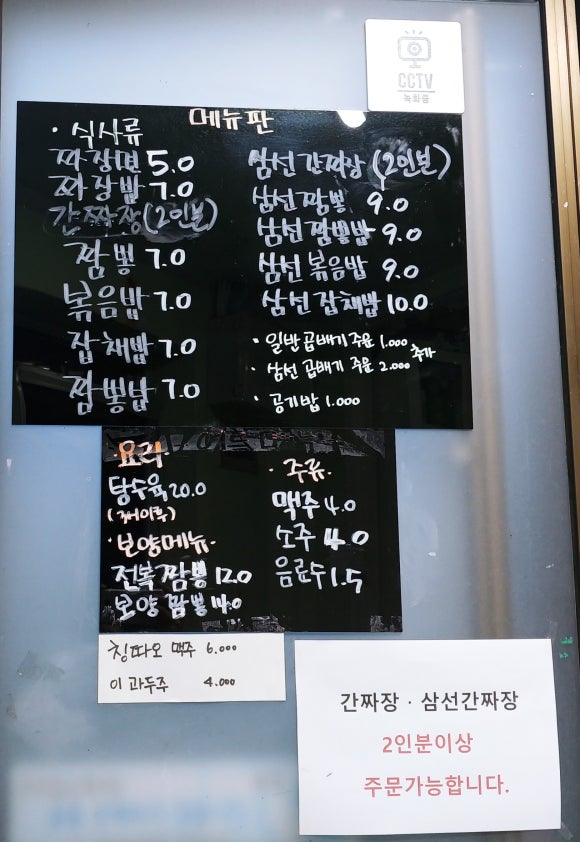 CCTV
녹화중
메뉴판
· 식사류
짜장면 5.0
짜장밥 7.0
간짜장(2인분)
짬뽕 7.0
볶음밥 7.0
잡채밥 7.0
짬뽕밥 7.0
삼선간짜장 (2인분)
삼선짬뽕 9.0
삼선짬뽕밥 9.0
삼선볶음밥 9.0
삼선잡채밥 10.0
· 일반곱배기 주문 1.000
· 삼선 곱배기 주문 2.000 추가
· 공기밥 1.000
· 요리
탕수육 20.0
· 보양메뉴.
전복짬뽕 12.0
보양짬뽕 14.0
· 주류.
맥주 4.0
소주 4.0
음료수 1.5
칭따오 맥주 6.000
이과두주 4.000
간짜장 · 삼선간짜장
2인분이상
주문가능합니다.